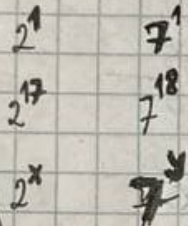 2¹ 7¹
2¹⁷ 7¹⁸
2ˣ 7ʸ